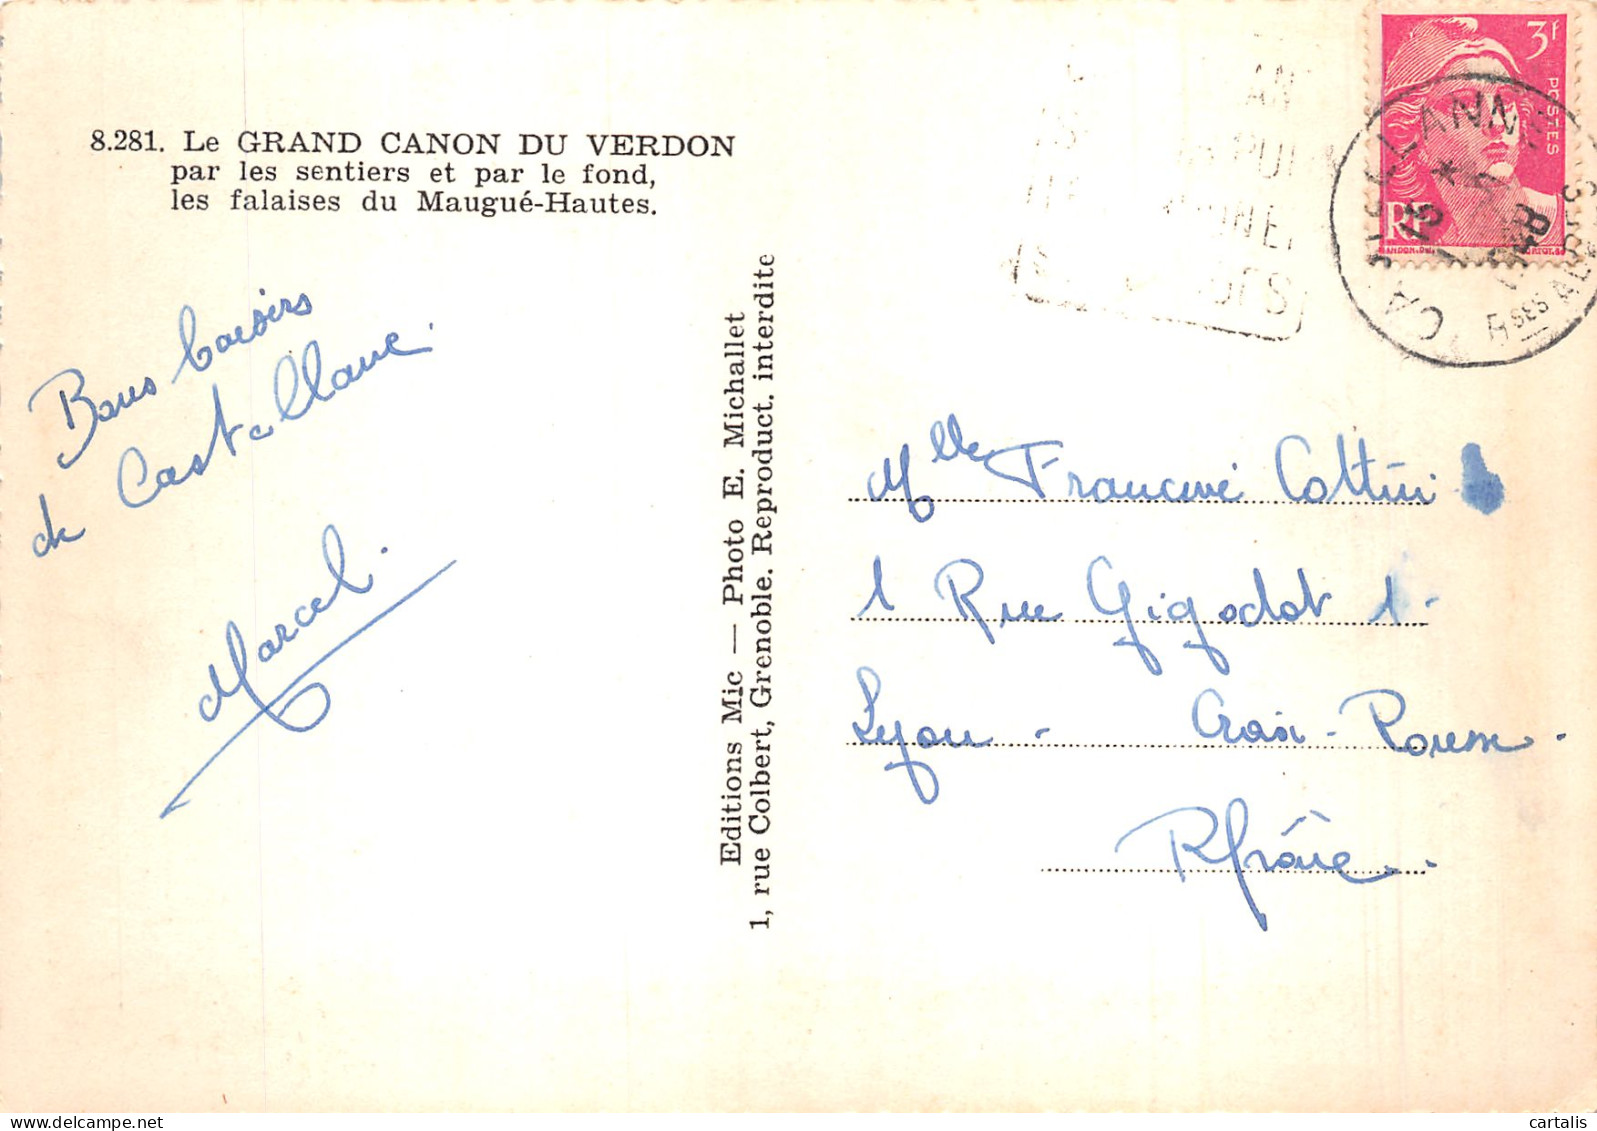 8.281. Le GRAND CANON DU VERDON
par les sentiers et par le fond,
les falaises du Maugué-Hautes.
Bons baisers
de Castellane
Marcel.
Editions Mic — Photo E. Michallet
1, rue Colbert, Grenoble. Reproduct. interdite
3F
POSTES
RF
CASTELLANNE
Bses ALPES
Mlle Francine Cottin
1 Rue Gigodot 1.
Lyon - Croix-Rousse.
Rhône.
delcampe.net
cartalis